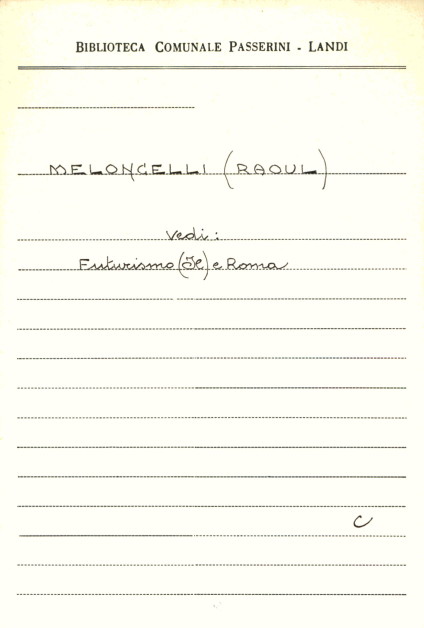 BIBLIOTECA COMUNALE PASSERINI - LANDI
MELONCELLI (RAOUL)
Vedi:
Futurismo (Il) e Roma
C